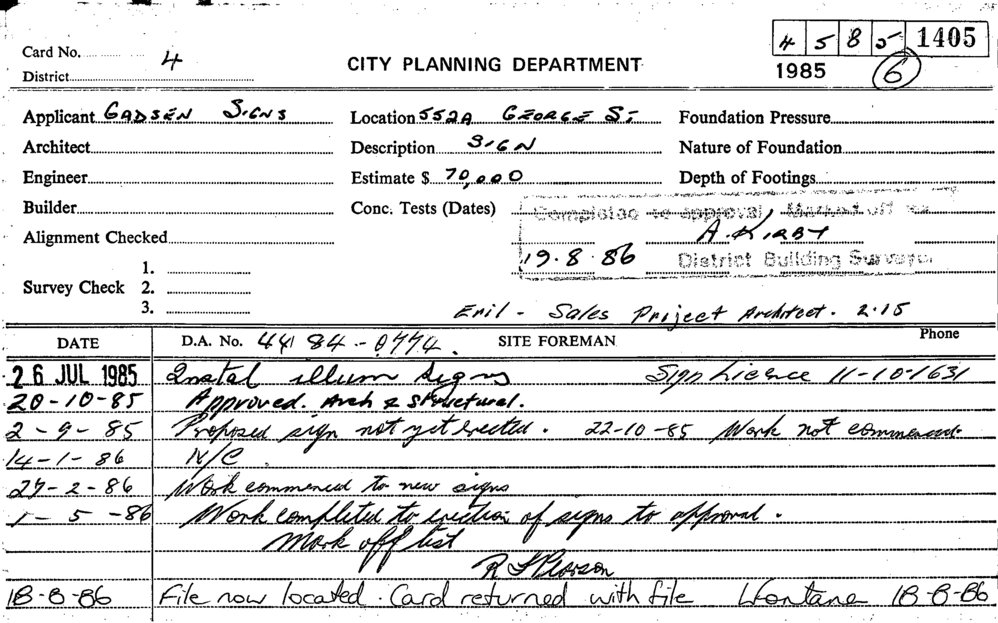 Card No. 4
4 5 8 5 1405
CITY PLANNING DEPARTMENT
District
1985 6
Applicant GADSEN SIGNS Location 552A GEORGE ST Foundation Pressure
Architect Description SIGN Nature of Foundation
Engineer Estimate $ 70,000 Depth of Footings
Builder Conc. Tests (Dates) Completed to approval, Marked off
Alignment Checked A. KIRBY
19.8.86 District Building Surveyor
1.
Survey Check 2.
3.
Sales Project Architect. 2.15
DATE D.A. No. 44 84-0774. SITE FOREMAN Phone
26 JUL 1985 Instal illum signs Sign Licence 11-10-1631
20-10-85 Approved. Arch & Structural.
2-9-85 Proposed sign not yet erected. 22-10-85 Work not commenced.
14-1-86 N/C.
27-2-86 Work commenced to new signs
1-5-86 Work completed to erection of signs to approval.
Mark off list
18-8-86 File now located. Card returned with file LFontane 18-8-86